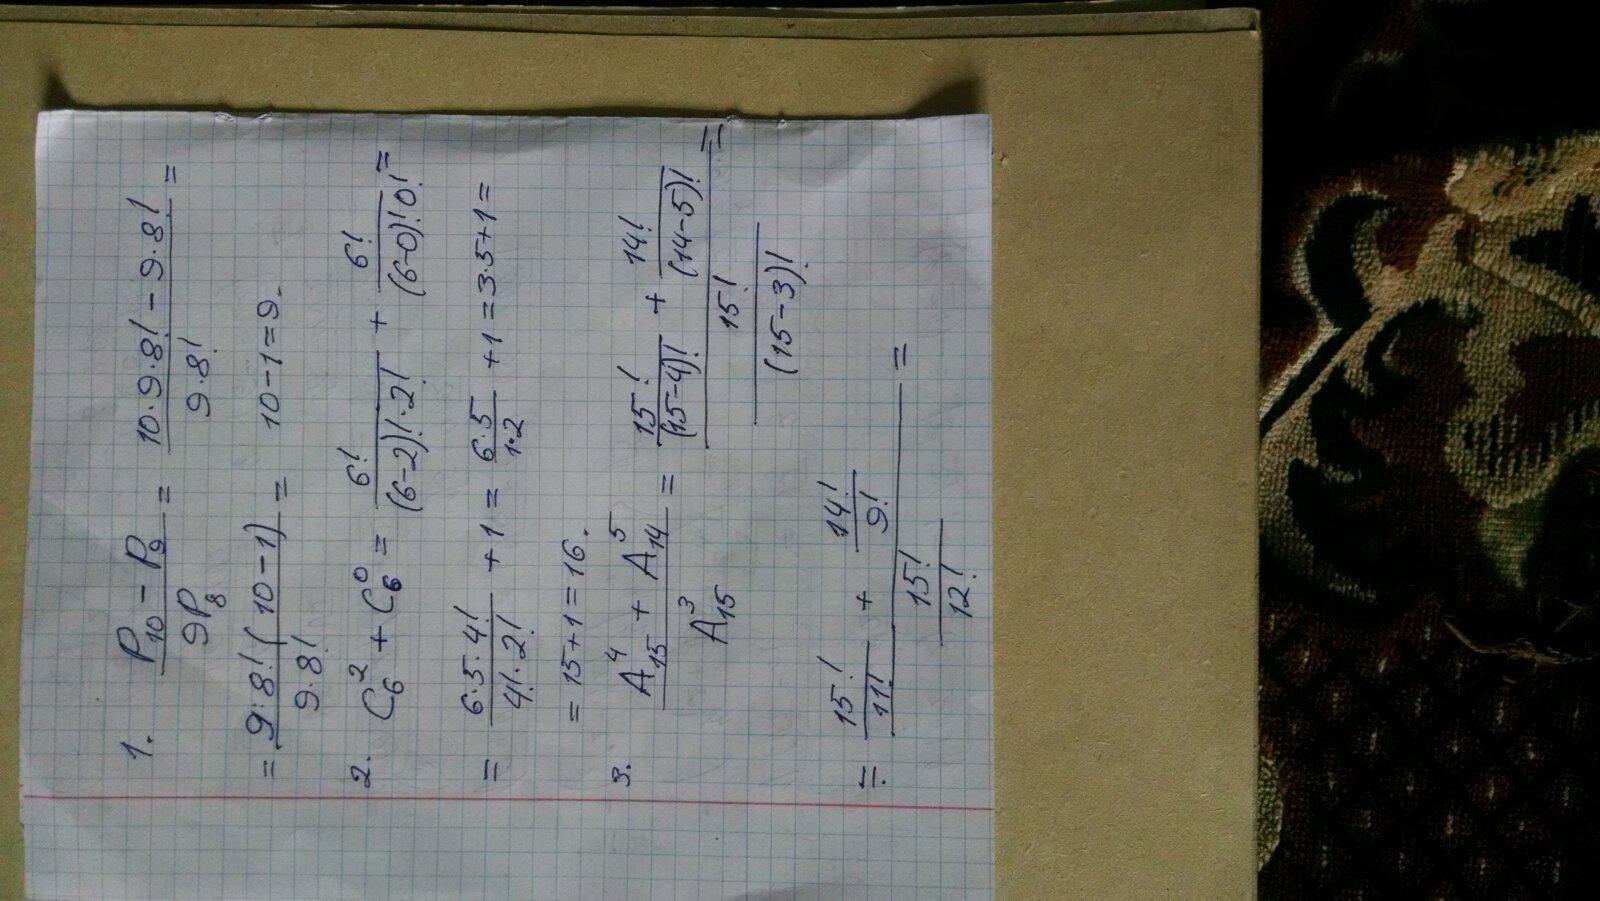 1. (P₁₀ − P₉)/(9P₈) = (10·9·8! − 9·8!)/(9·8!) =
= (9·8!(10−1))/(9·8!) = 10−1=9.
2. C₆² + C₆⁰ = 6!/((6−2)!·2!) + 6!/((6−0)!0!) =
= (6·5·4!)/(4!·2!) + 1 = (6·5)/(1·2) + 1 = 3·5+1 =
= 15+1=16.
3. (A₁₅⁴ + A₁₄⁵)/A₁₅³ = (15!/(15−4)! + 14!/(14−5)!)/(15!/(15−3)!) =
= (15!/11! + 14!/9!)/(15!/12!) =